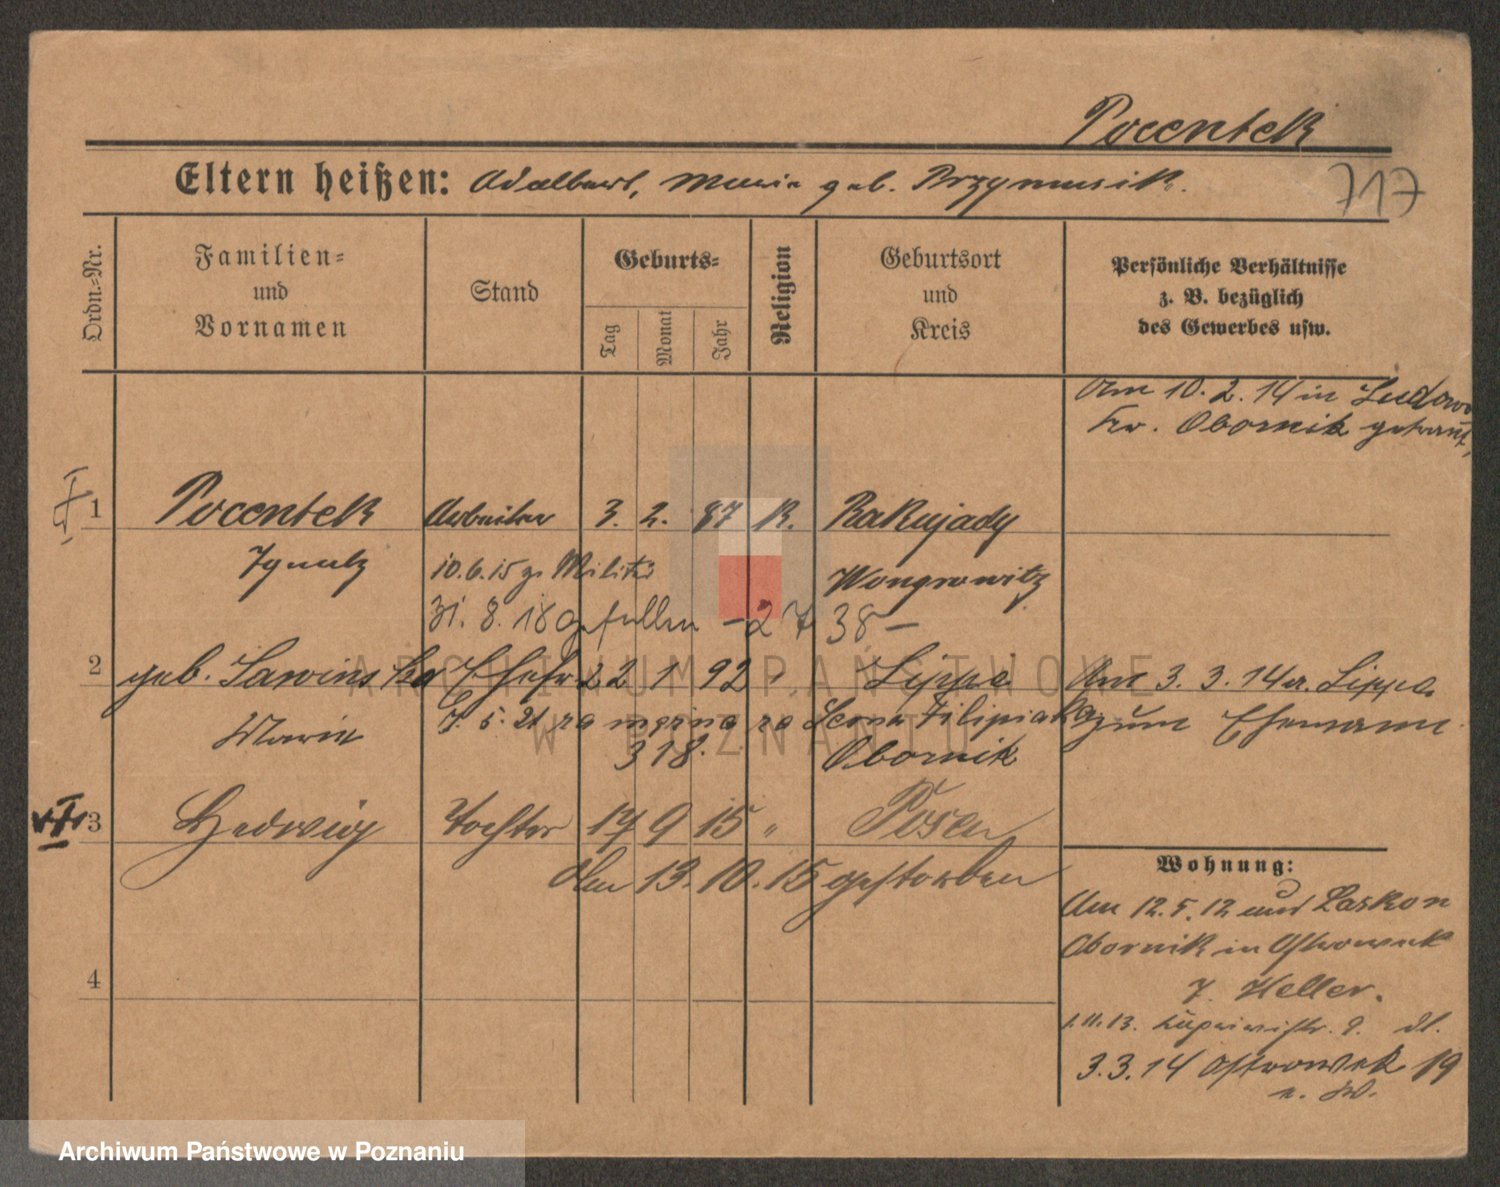 Pocentek
Eltern heißen: Adalbert, Marie geb. Przymusik.
717
Ordn.-Nr.
Familien- und Vornamen
Stand
Geburts-
Tag
Monat
Jahr
Religion
Geburtsort und Kreis
Persönliche Verhältnisse
z. B. bezüglich
des Gewerbes usw.
Am 10. 2. 14 in Ludowo
Kr. Obornik getraut,
1 Pocentek Arbeiter 3. 2. 87 K. Rakujady
Ignatz 10.6.15 z. Militär Wongrowitz
31. 8. 18 gefallen - 2738 -
2 geb. Sawinska Ehefr. 22 1 92 " Lippa Am 3. 3. 14 a. Lippa
Marie 7. 5. 21 za mężna za Leona Filipiaka zum Ehemann
318. Obornik
3 Hedwig Tochter 17 9 15 " Posen
Am 13. 10. 15 gestorben
4
Wohnung:
Am 12. 5. 12 Laskon
Obornik in Ostrowek
7. Heller.
1. 11. 13. 9.
3. 3. 14 Ostrowek 19
ARCHIWUM PAŃSTWOWE
W POZNANIU
Archiwum Państwowe w Poznaniu